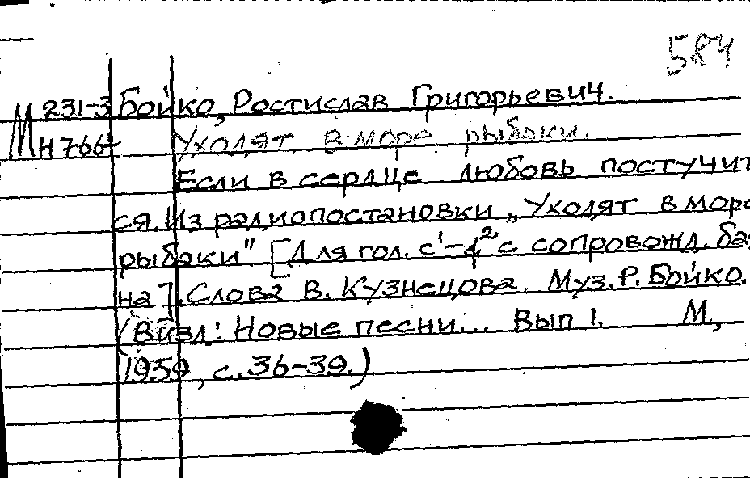 584
М 231-3 Бойко, Ростислав Григорьевич.
Н 766 Уходят в море рыбаки.
Если в сердце любовь постучит
ся. Из радиопостановки „Уходят в море
рыбаки" [Для гол. с'-д² с сопровожд. бая
на]. Слова В. Кузнецова. Муз. Р. Бойко.
(В изд: Новые песни... Вып 1. М,
1959, с. 36-39.)